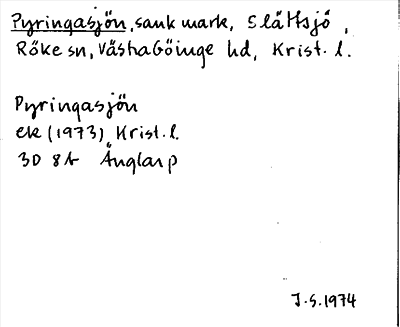 Pyringasjön, sank mark, Slättsjö,
Röke sn, Västra Göinge hd, Krist. l.
Pyringasjön
ek (1973), Krist. l.
3D 8b Änglarp
J.S. 1974